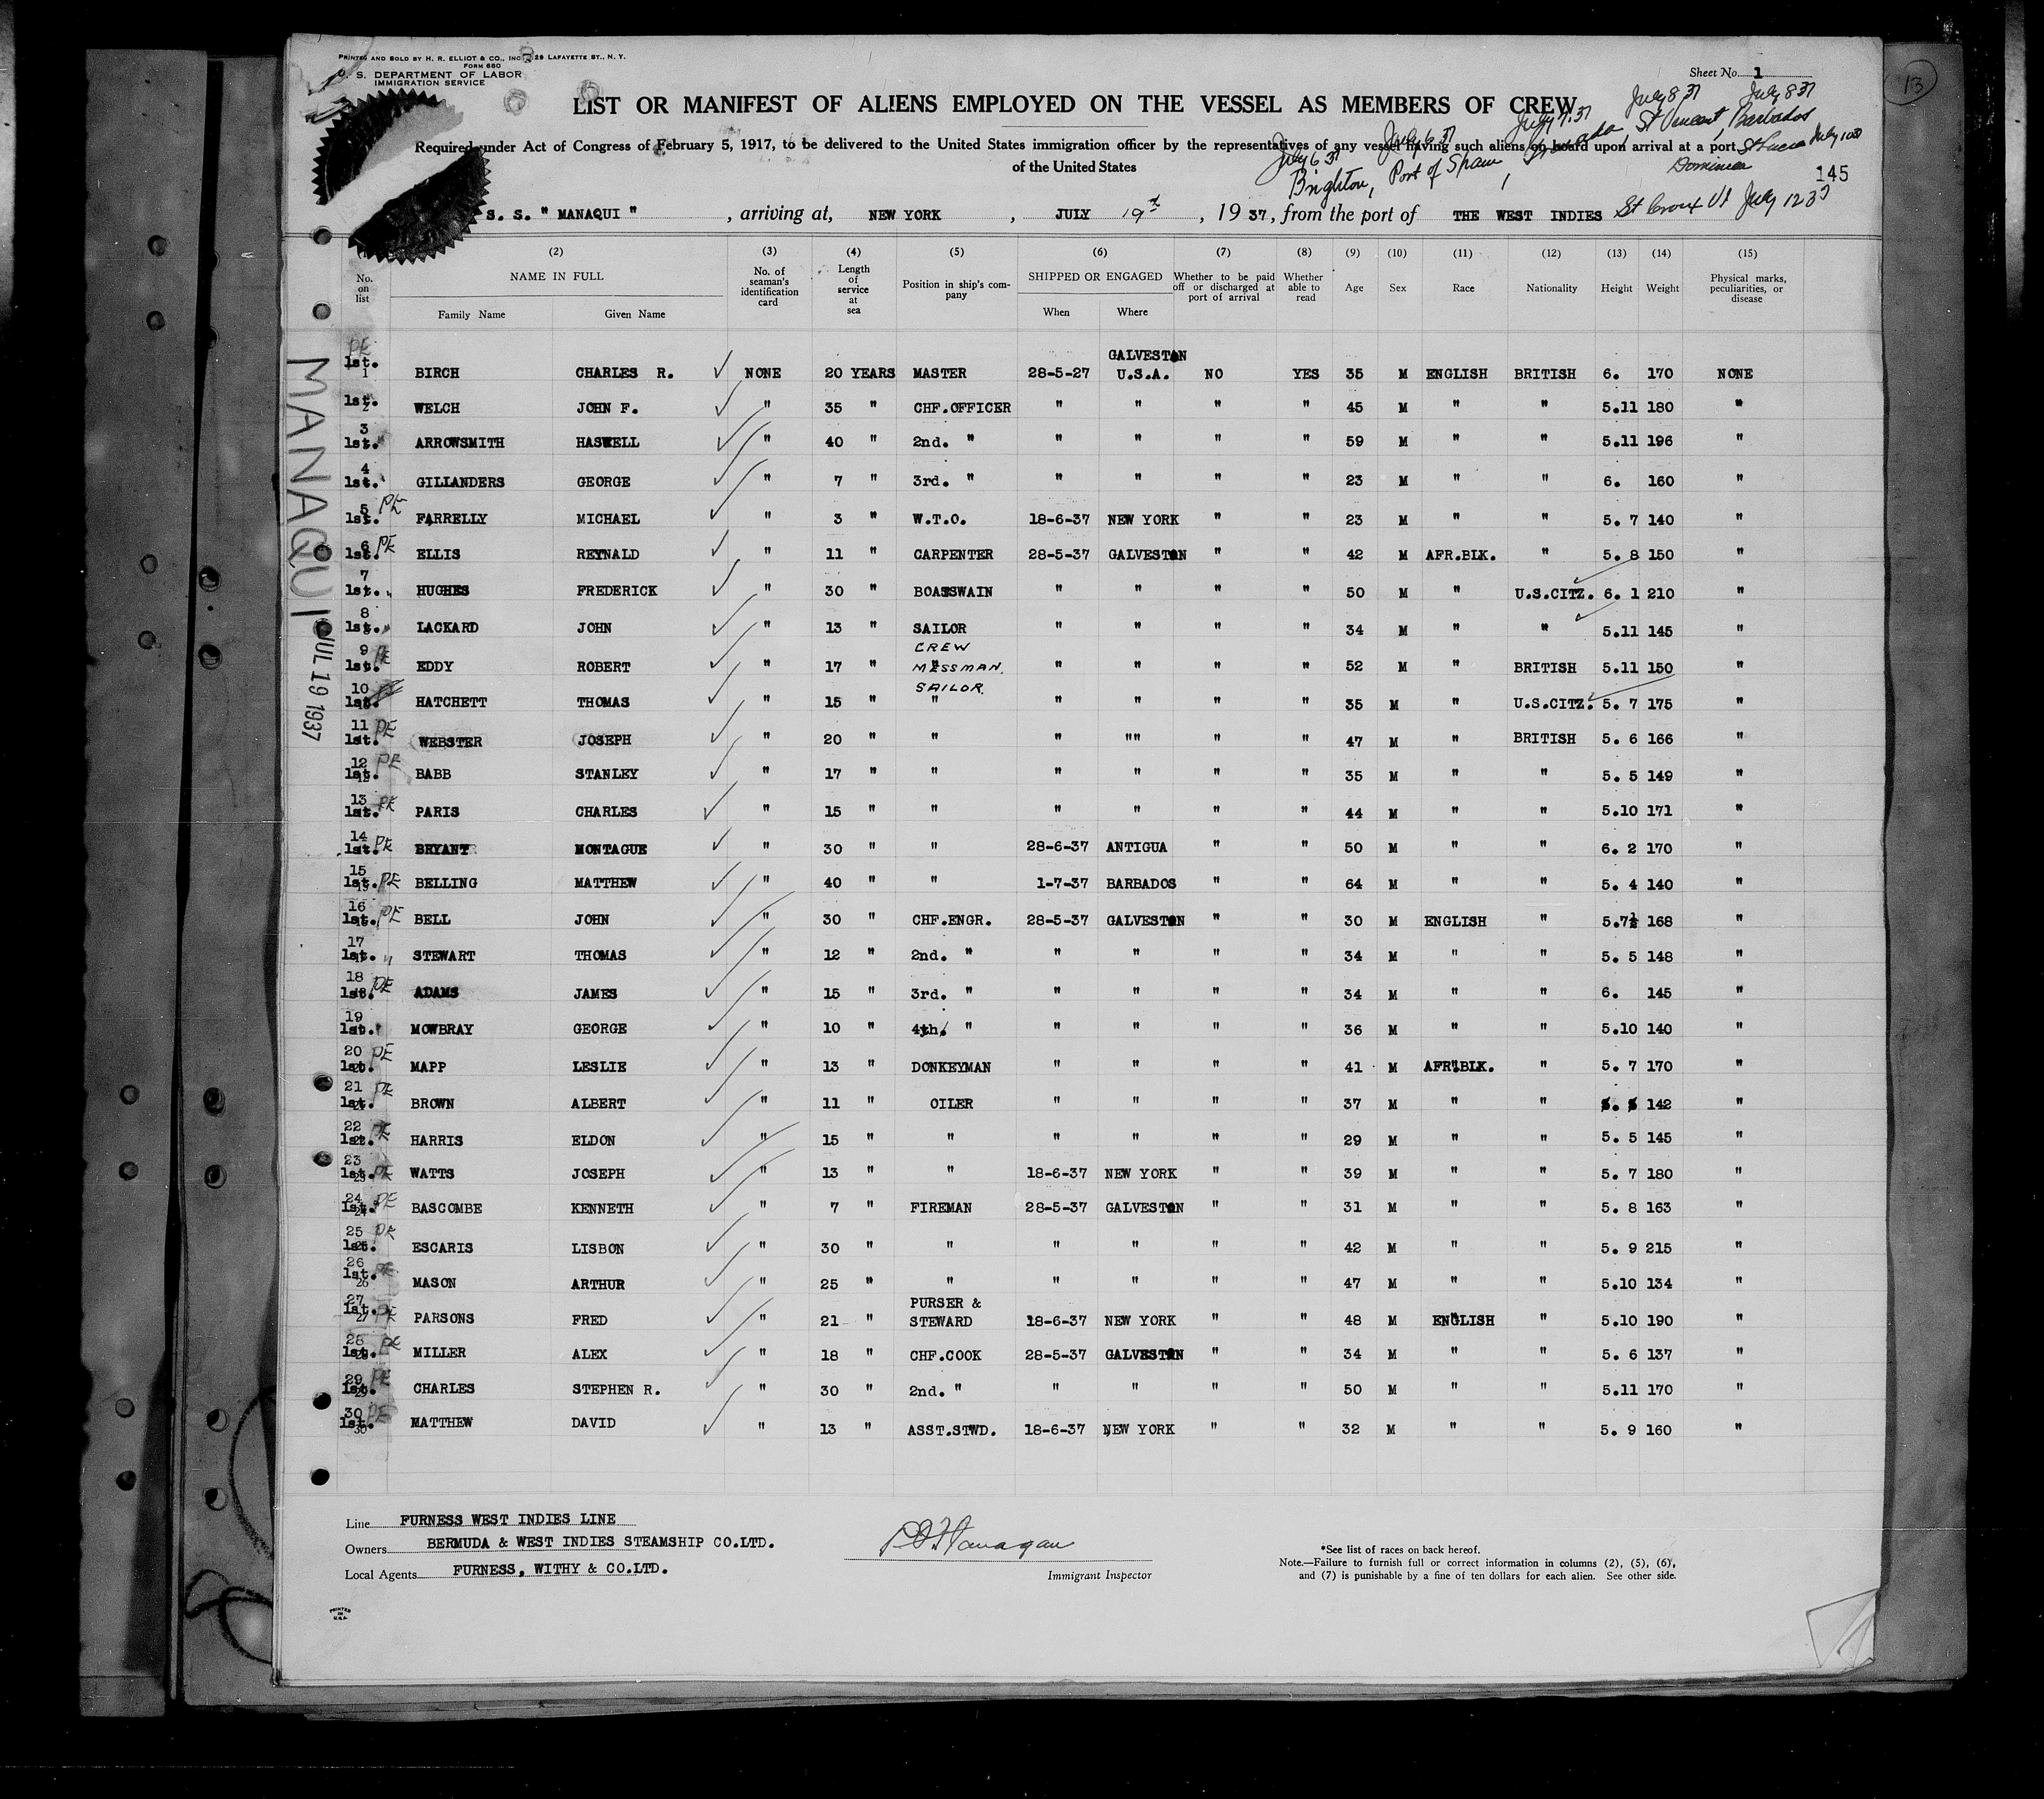 PRINTED AND SOLD BY H. R. ELLIOT & CO., INC. 29 LAFAYETTE ST., N. Y.
FORM 680
U. S. DEPARTMENT OF LABOR
IMMIGRATION SERVICE
Sheet No. 1
13
LIST OR MANIFEST OF ALIENS EMPLOYED ON THE VESSEL AS MEMBERS OF CREW
July 6 37 July 6 37 July 7. 37 July 8 37 July 8 37
Required under Act of Congress of February 5, 1917, to be delivered to the United States immigration officer by the representatives of any vessel having such aliens on board upon arrival at a port
of the United States
Brighton, Port of Spain, St Vincent, Barbados
St Lucia July 10 37
Dominica
145
S. S. " MANAQUI " , arriving at, NEW YORK , JULY 19th , 19 37, from the port of THE WEST INDIES St Croix VI July 12 37
(2) (3) (4) (5) (6) (7) (8) (9) (10) (11) (12) (13) (14) (15)
No. on list NAME IN FULL No. of seaman's identification card Length of service at sea Position in ship's company SHIPPED OR ENGAGED Whether to be paid off or discharged at port of arrival Whether able to read Age Sex Race Nationality Height Weight Physical marks, peculiarities, or disease
Family Name Given Name When Where
MANAQUI
JUL 19 1937
PE 1st. 1 BIRCH CHARLES R. NONE 20 YEARS MASTER 28-5-27 GALVESTON U.S.A. NO YES 35 M ENGLISH BRITISH 6. 170 NONE
1st. 2 WELCH JOHN F. " 35 " CHF.OFFICER " " " " 45 M " " 5.11 180 "
3 1st. ARROWSMITH HASWELL " 40 " 2nd. " " " " " 59 M " " 5.11 196 "
4 1st. GILLANDERS GEORGE " 7 " 3rd. " " " " " 23 M " " 6. 160 "
5 1st. PE FARRELLY MICHAEL " 3 " W.T.O. 18-6-37 NEW YORK " " 23 M " " 5. 7 140 "
6 1st. PE ELLIS REYNALD " 11 " CARPENTER 28-5-37 GALVESTON " " 42 M AFR.BLK. " 5. 8 150 "
7 1st. HUGHES FREDERICK " 30 " BOATSWAIN " " " " 50 M " U.S.CITZ. 6. 1 210 "
8 1st. LACKARD JOHN " 13 " SAILOR " " " " 34 M " " 5.11 145 "
9 1st. PE EDDY ROBERT " 17 " CREW MESSMAN. " " " " 52 M " BRITISH 5.11 150 "
10 1st. HATCHETT THOMAS " 15 " SAILOR. " " " " " 35 M " U.S.CITZ. 5. 7 175 "
11 1st. PE WEBSTER JOSEPH " 20 " " " "" " " 47 M " BRITISH 5. 6 166 "
12 1st. PE BABB STANLEY " 17 " " " " " " 35 M " " 5. 5 149 "
13 1st. PE PARIS CHARLES " 15 " " " " " " 44 M " " 5.10 171 "
14 1st. PE BRYANT MONTAGUE " 30 " " 28-6-37 ANTIGUA " " 50 M " " 6. 2 170 "
15 1st. PE BELLING MATTHEW " 40 " " 1-7-37 BARBADOS " " 64 M " " 5. 4 140 "
16 1st. PE BELL JOHN " 30 " CHF.ENGR. 28-5-37 GALVESTON " " 30 M ENGLISH " 5.7½ 168 "
17 1st. " STEWART THOMAS " 12 " 2nd. " " " " " 34 M " " 5. 5 148 "
18 1st. PE ADAMS JAMES " 15 " 3rd. " " " " " 34 M " " 6. 145 "
19 1st. " MOWBRAY GEORGE " 10 " 4th. " " " " " 36 M " " 5.10 140 "
20 1st. PE MAPP LESLIE " 13 " DONKEYMAN " " " " 41 M AFR.BLK. " 5. 7 170 "
21 1st. PE BROWN ALBERT " 11 " OILER " " " " 37 M " " 142 "
22 1st. PE HARRIS ELDON " 15 " " " " " " 29 M " " 5. 5 145 "
23 1st. PE WATTS JOSEPH " 13 " " 18-6-37 NEW YORK " " 39 M " " 5. 7 180 "
24 1st. PE BASCOMBE KENNETH " 7 " FIREMAN 28-5-37 GALVESTON " " 31 M " " 5. 8 163 "
25 1st. PE ESCARIS LISBON " 30 " " " " " " 42 M " " 5. 9 215 "
26 1st. PE MASON ARTHUR " 25 " " " " " " 47 M " " 5.10 134 "
27 1st. PE PARSONS FRED " 21 " PURSER & STEWARD 18-6-37 NEW YORK " " 48 M ENGLISH " 5.10 190 "
28 1st. PE MILLER ALEX " 18 " CHF.COOK 28-5-37 GALVESTON " " 34 M " " 5. 6 137 "
29 1st. PE CHARLES STEPHEN R. " 30 " 2nd. " " " " " 50 M " " 5.11 170 "
30 1st. PE MATTHEW DAVID " 13 " ASST.STWD. 18-6-37 NEW YORK " " 32 M " " 5. 9 160 "
Line FURNESS WEST INDIES LINE
Owners BERMUDA & WEST INDIES STEAMSHIP CO.LTD.
Local Agents FURNESS, WITHY & CO.LTD.
Immigrant Inspector
*See list of races on back hereof.
Note.—Failure to furnish full or correct information in columns (2), (5), (6),
and (7) is punishable by a fine of ten dollars for each alien. See other side.
PRINTED
IN
U.S.A.